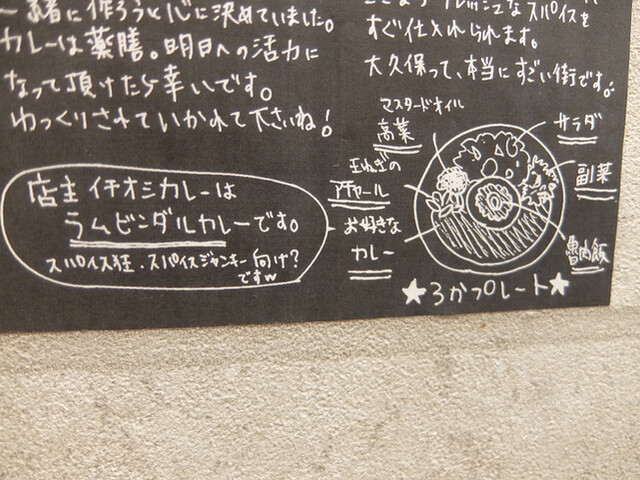 一緒に作ろうと心に決めていました。
カレーは薬膳。明日への活力に
なって頂けたら幸いです。
ゆっくりされていかれて下さいね！
スパイスを
すぐ仕入れられます。
大久保って、本当にすごい街です。
店主イチオシカレーは
ラムビンダルカレーです。
スパイス狂・スパイスジャンキー向け？
ですw
マスタードオイル
高菜
玉ねぎの
アチャール
お好きな
カレー
サラダ
副菜
魯肉飯
★ろかプレート★